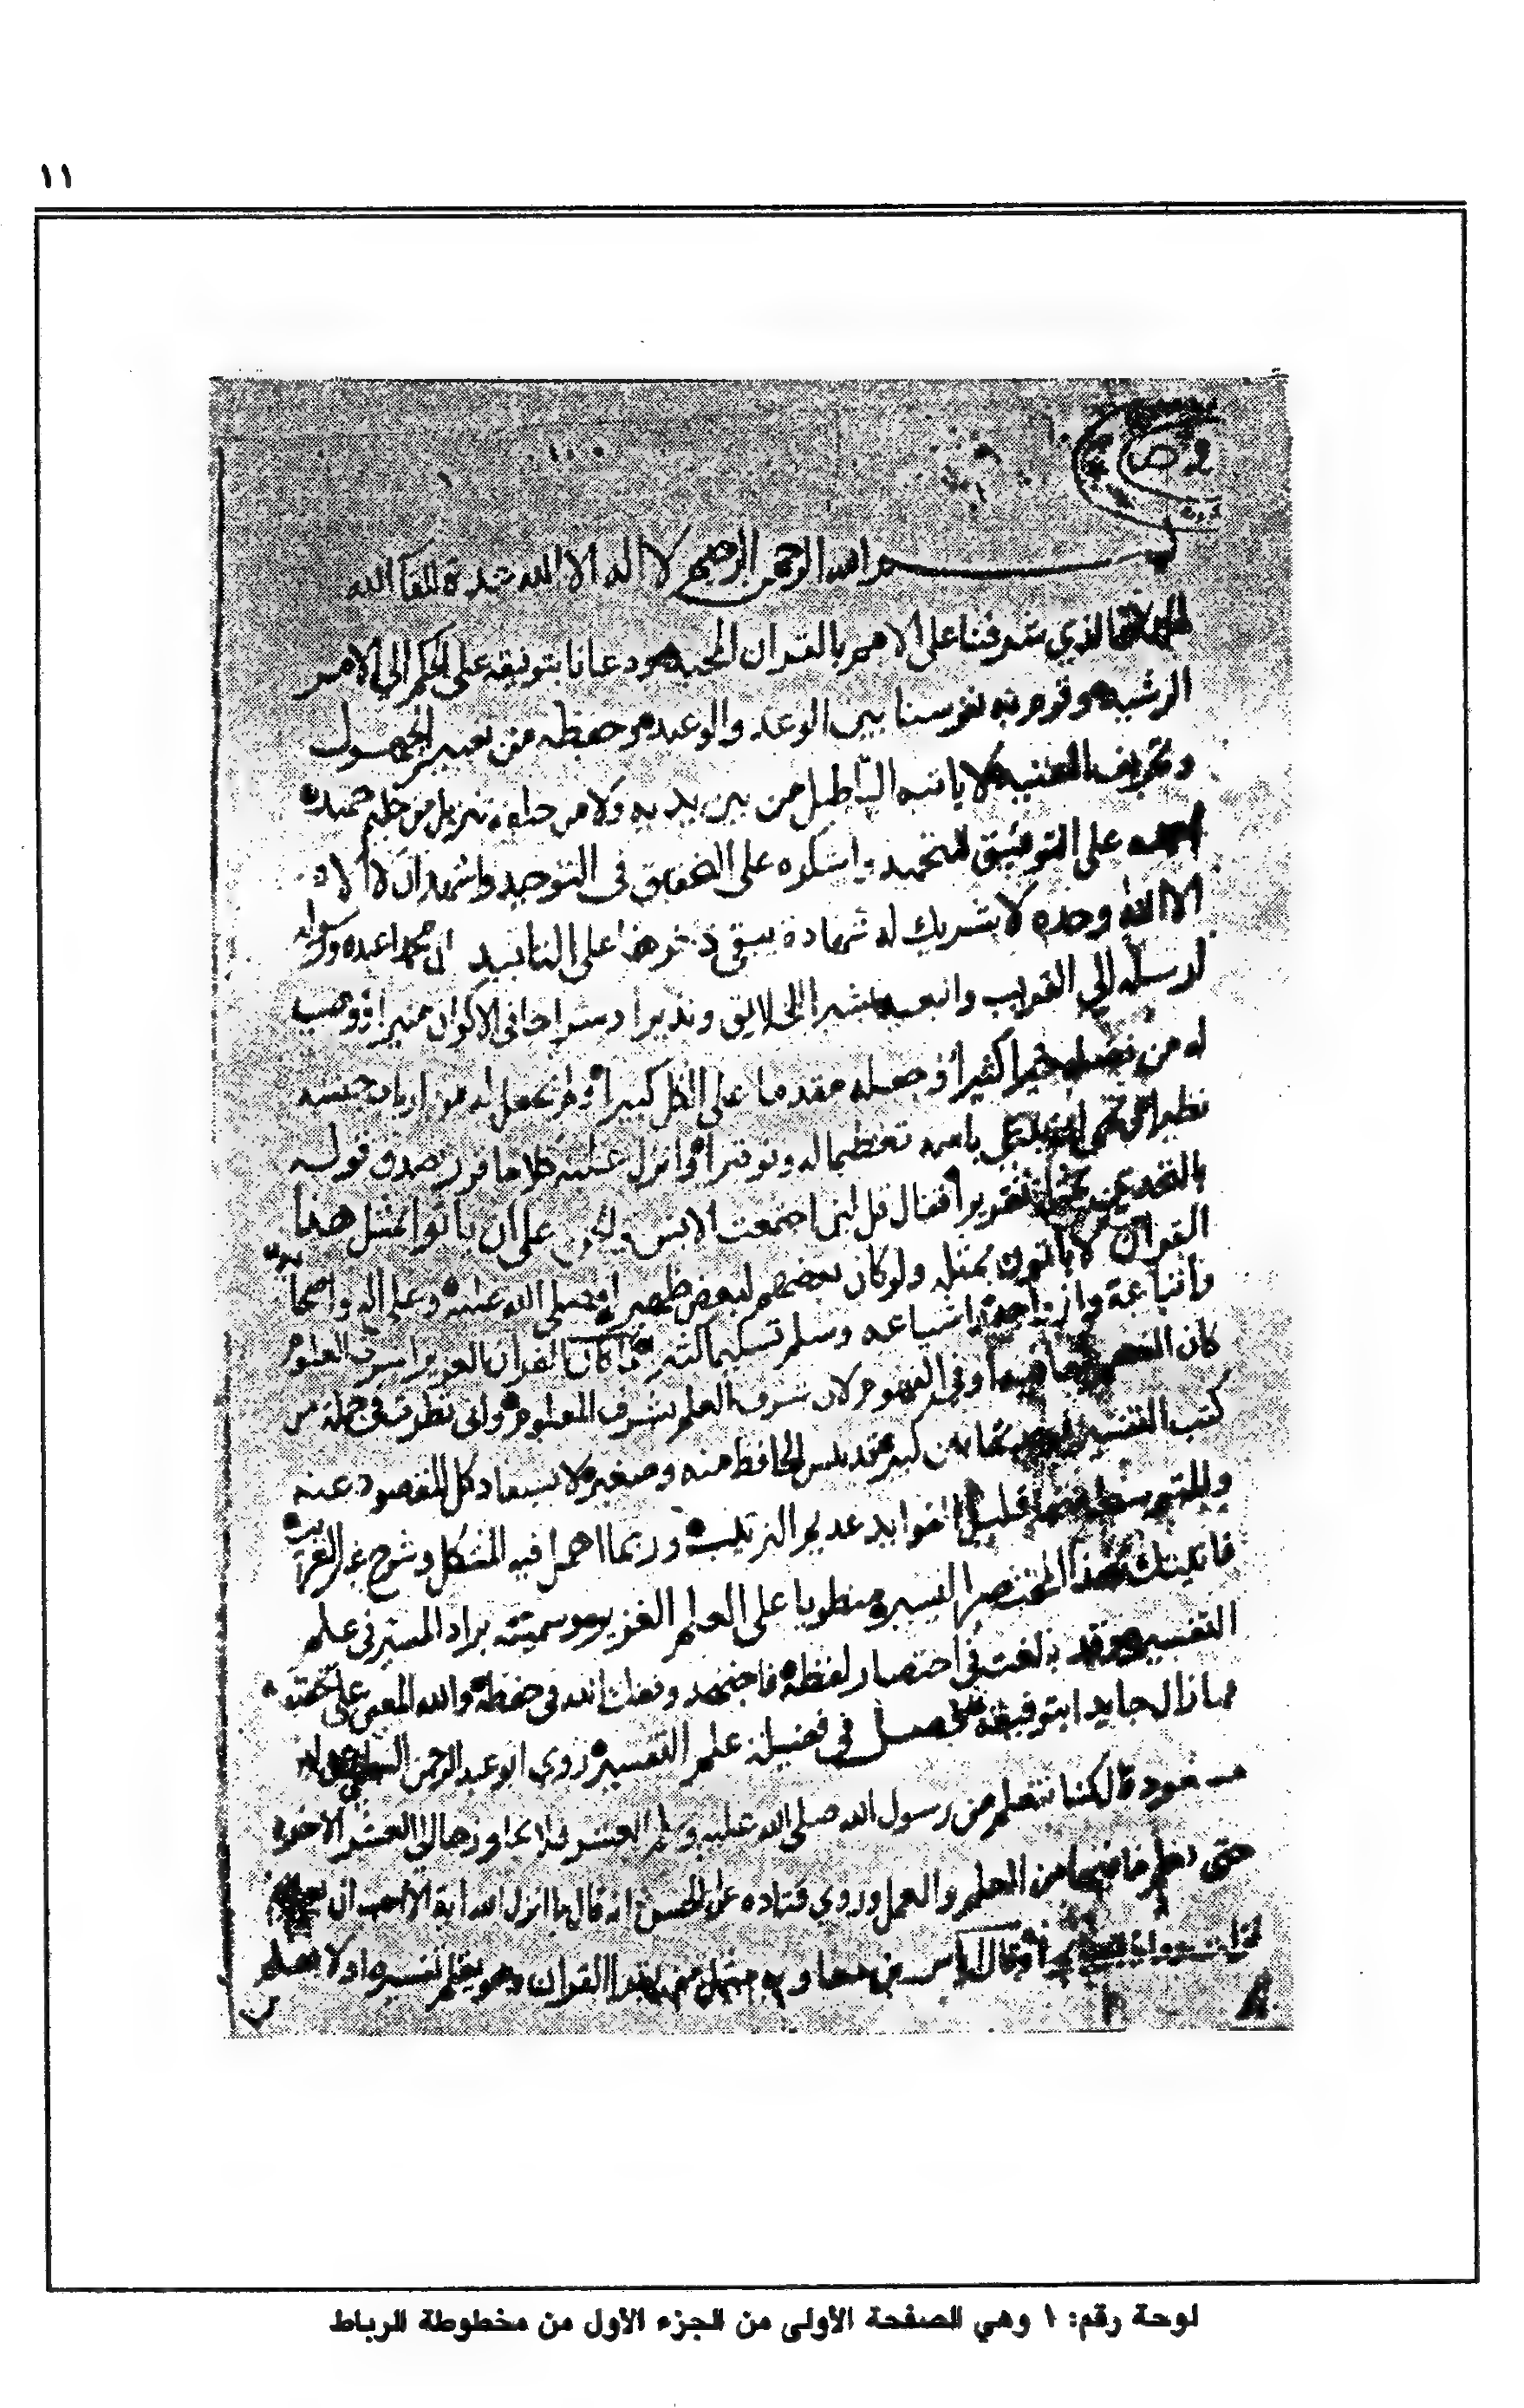 ١١
بسم الله الرحمن الرحيم لا اله الا الله عدة للقا الله
الحمد لله الذي شرفنا على الامم بالقران المجيد ودعانا بتوفيقه على الحكم الى الامر
الرشيد وقوم به نفوسنا بين الوعد والوعيد وحفظه من تغيير الجهول
وتحريف العنيد لا ياتيه الباطل من بين يديه ولا من خلفه تنزيل من حكيم حميد
احمده على التوفيق للتحميد واشكره على التحقيق في التوحيد واشهد ان لا اله
الا الله وحده لا شريك له شهادة يبقى ذخرها على التابيد ان محمدا عبده ورسوله
ارسله الى القريب والبعيد بشيرا للخلايق ونذيرا وسراجا في الاكوان منيرا ووهب
له من فضله خيرا كثيرا وجعله مقدما على الكل كبيرا ولم يجعل له من ارباب جنسه
نظيرا ونهى ان يدعى باسمه تعظيما له وتوقيرا وانزل عليه كلاما قرر صدق قوله
بالتحدي بمثله تقريرا فقال قل لئن اجتمعت الانس والجن على ان ياتوا بمثل هذا
القران لا ياتون بمثله ولو كان بعضهم لبعض ظهيرا فصلى الله عليه وعلى اله واصحابه
واتباعه وازواجه واشياعه وسلم تسليما كثيرا لما كان القران العزيز اشرف العلوم
كان الفهم لمعانيه اوفى الفهوم لان شرف العلم بشرف المعلوم واني نظرت في جملة من
كتب التفسير فوجدتها بين كبير قد يئس الحافظ منه وصغير لا يستفاد كل المقصود عنه
والمتوسط منها قليل الفوايد عديم الترتيب وربما اهمل فيه المشكل وشرح غير الغريب
فاتيتك بهذا المختصر اليسير منطويا على العلم الغزير ووسمته بزاد المسير في علم
التفسير وقد بالغت في اختصار لفظه فاجتهد وفقك الله في حفظه والله المعين على تحقيقه
فما زال جايدا بتوفيقه فصل في فضيلة علم التفسير روى ابو عبد الرحمن السلمي عن ابن
مسعود قال كنا نتعلم من رسول الله صلى الله عليه وسلم العشر فلا نجاوزها الى العشر الاخر
حتى نعلم ما فيها من العلم والعمل وروى قتادة عن الحسن انه قال ما انزل الله اية الا احب ان
وقال اياس بن معاوية مثل من يقرا القران وهو يعلم تفسيره او لا يعلم
لوحة رقم: ١ وهي الصفحة الأولى من الجزء الأول من مخطوطة الرباط